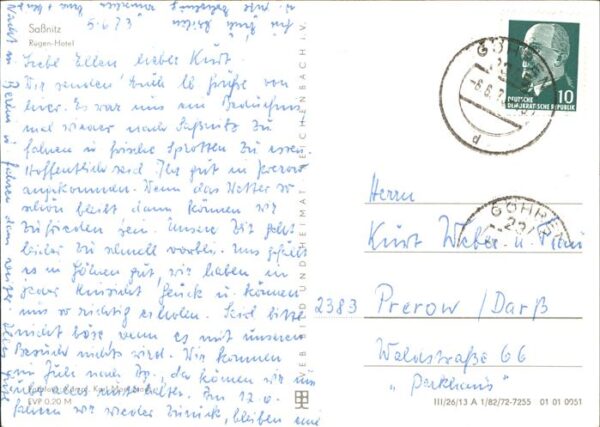 Saßnitz
Rügen-Hotel
5.6.73
Liebe Ellen lieber Kurt.
Wir senden Euch lb Grüße von
hier. Es war uns ein Bedürfnis
mal wieder nach Saßnitz zu
fahren in frische Sprotten zu essen
Hoffentlich seid Ihr gut in Prerow
angekommen. Wenn das Wetter so
schön bleibt dann können wir
zufrieden sein. Unsere Zeit geht
leider zu schnell vorbei. Uns gefällt
es in Göhren gut, wir haben in
jeder Hinsicht Glück u. können
uns so richtig erholen. Seid bitte
nicht böse wenn es mit unserem
Besuch nichts wird. Wir kommen
im Juli nach Bp., da können wir uns
über alles unterhalten. Am 12.6.
fahren wir wieder zurück, bleiben eine
Nacht in Berlin u. fahren dann weiter
VEB BILD UND HEIMAT REICHENBACH I. V.
EVP 0.20 M
GÖHREN
-6.6.7
d
DEUTSCHE
DEMOKRATISCHE REPUBLIK
10
GÖHREN
Herrn
Kurt Weber u. Frau
2383 Prerow / Darß
Waldstraße 66
„Parkhaus"
III/26/13 A 1/82/72-7255 01 01 0051